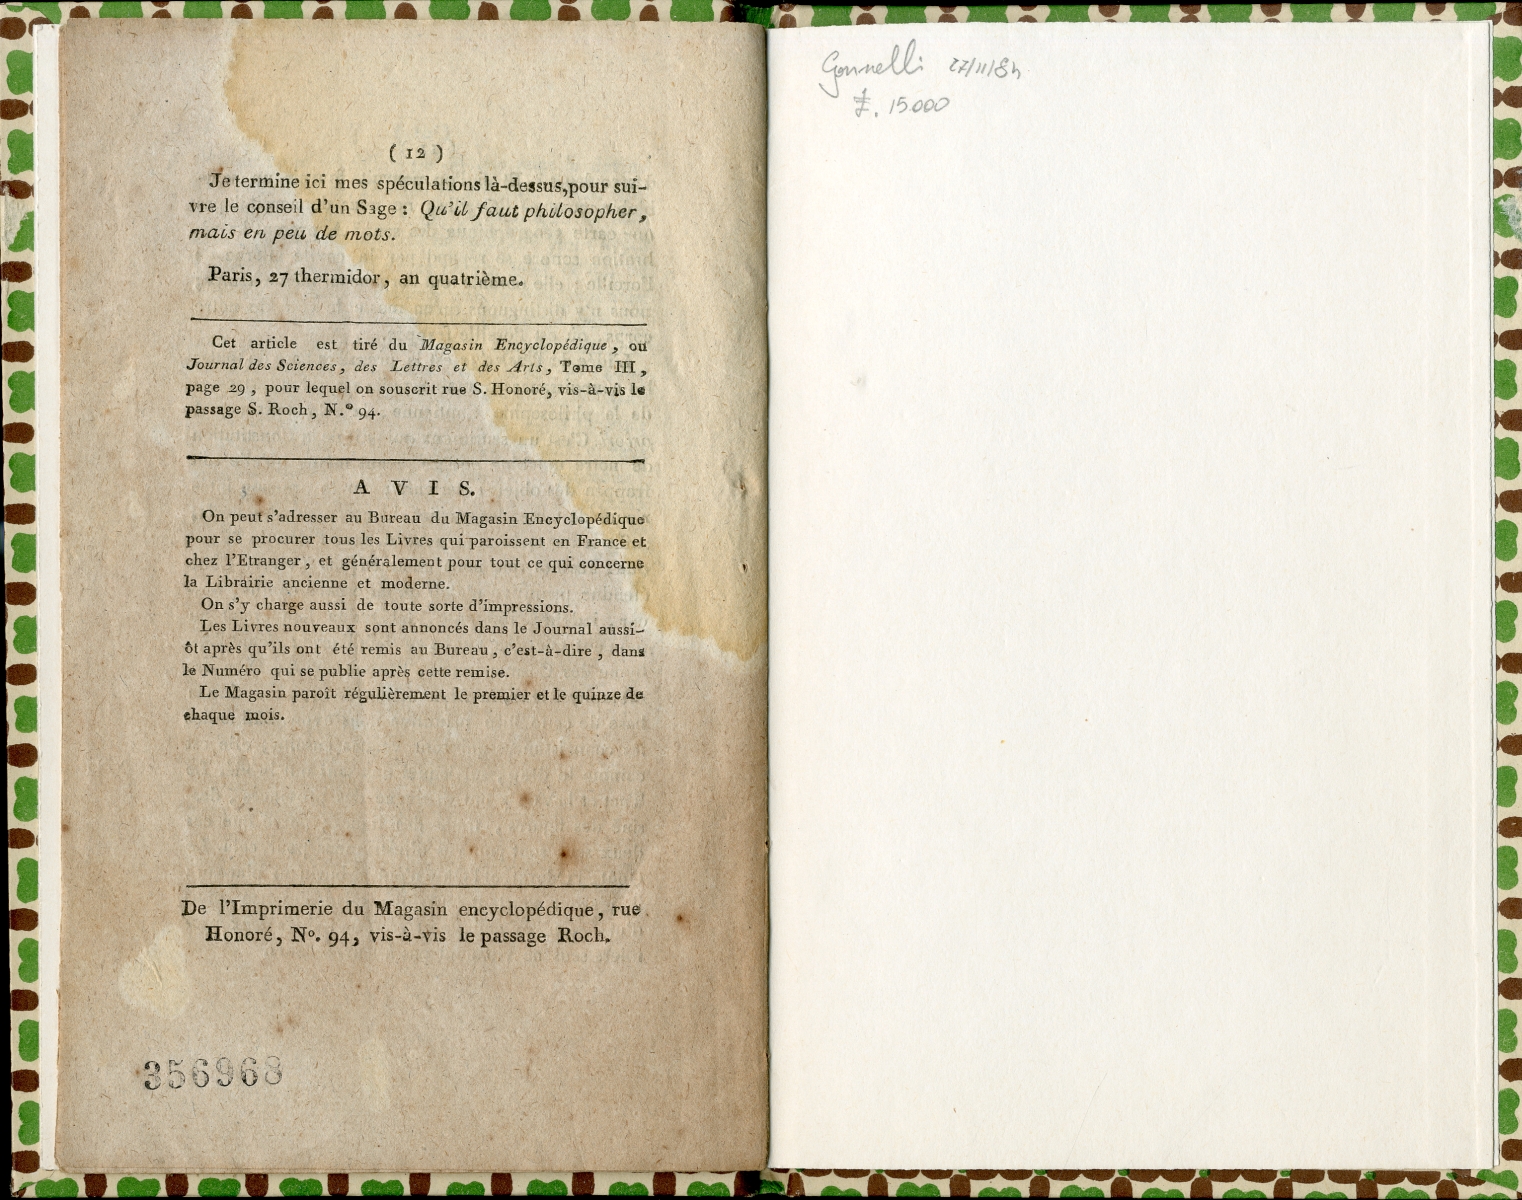 ( 12 )
Je termine ici mes spéculations là-dessus, pour sui-
vre le conseil d'un Sage : Qu'il faut philosopher,
mais en peu de mots.
Paris, 27 thermidor, an quatrième.
Cet article est tiré du Magasin Encyclopédique, ou
Journal des Sciences, des Lettres et des Arts, Tome III,
page 29, pour lequel on souscrit rue S. Honoré, vis-à-vis le
passage S. Roch, N.º 94.
A V I S.
On peut s'adresser au Bureau du Magasin Encyclopédique
pour se procurer tous les Livres qui paroissent en France et
chez l'Etranger, et généralement pour tout ce qui concerne
la Librairie ancienne et moderne.
On s'y charge aussi de toute sorte d'impressions.
Les Livres nouveaux sont annoncés dans le Journal aussi-
ôt après qu'ils ont été remis au Bureau, c'est-à-dire, dans
le Numéro qui se publie après cette remise.
Le Magasin paroît régulièrement le premier et le quinze de
chaque mois.
De l'Imprimerie du Magasin encyclopédique, rue
Honoré, Nº. 94, vis-à-vis le passage Roch.
356968
Gonnelli 27/11/84
£. 15.000